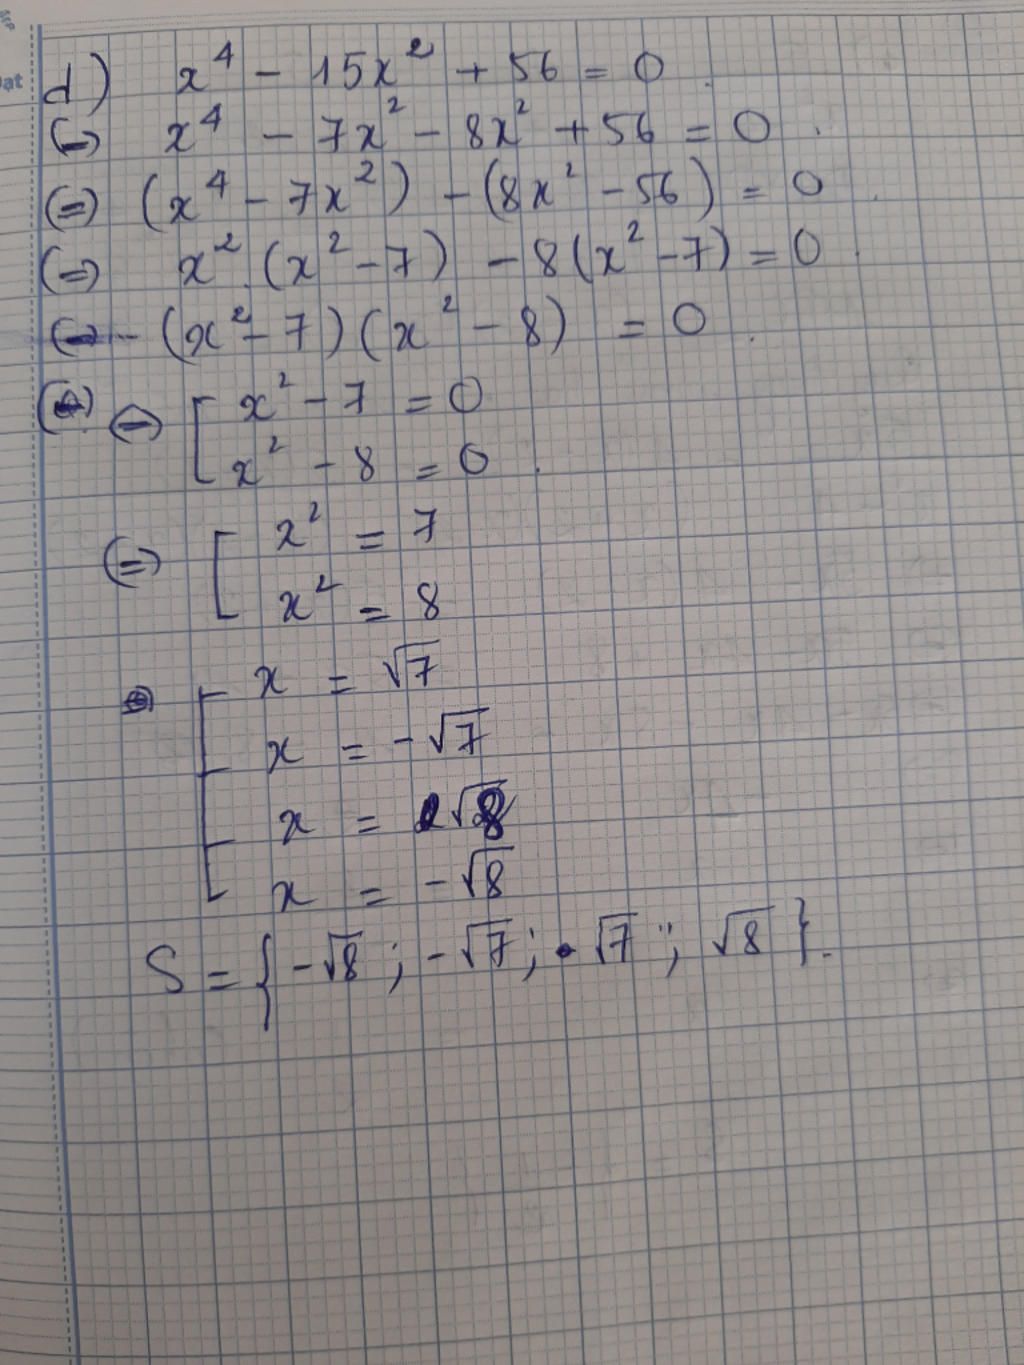 đạt
d) x⁴ - 15x² + 56 = 0.
(=) x⁴ - 7x² - 8x² + 56 = 0.
(=) (x⁴ - 7x²) - (8x² - 56) = 0.
(=) x².(x² - 7) - 8(x² - 7) = 0.
(=) (x² - 7)(x² - 8) = 0.
(=) [ x² - 7 = 0
x² - 8 = 0.
(=) [ x² = 7
x² = 8
[ x = √7
x = -√7
x = √8
x = -√8
S = {-√8; -√7; √7; √8}.